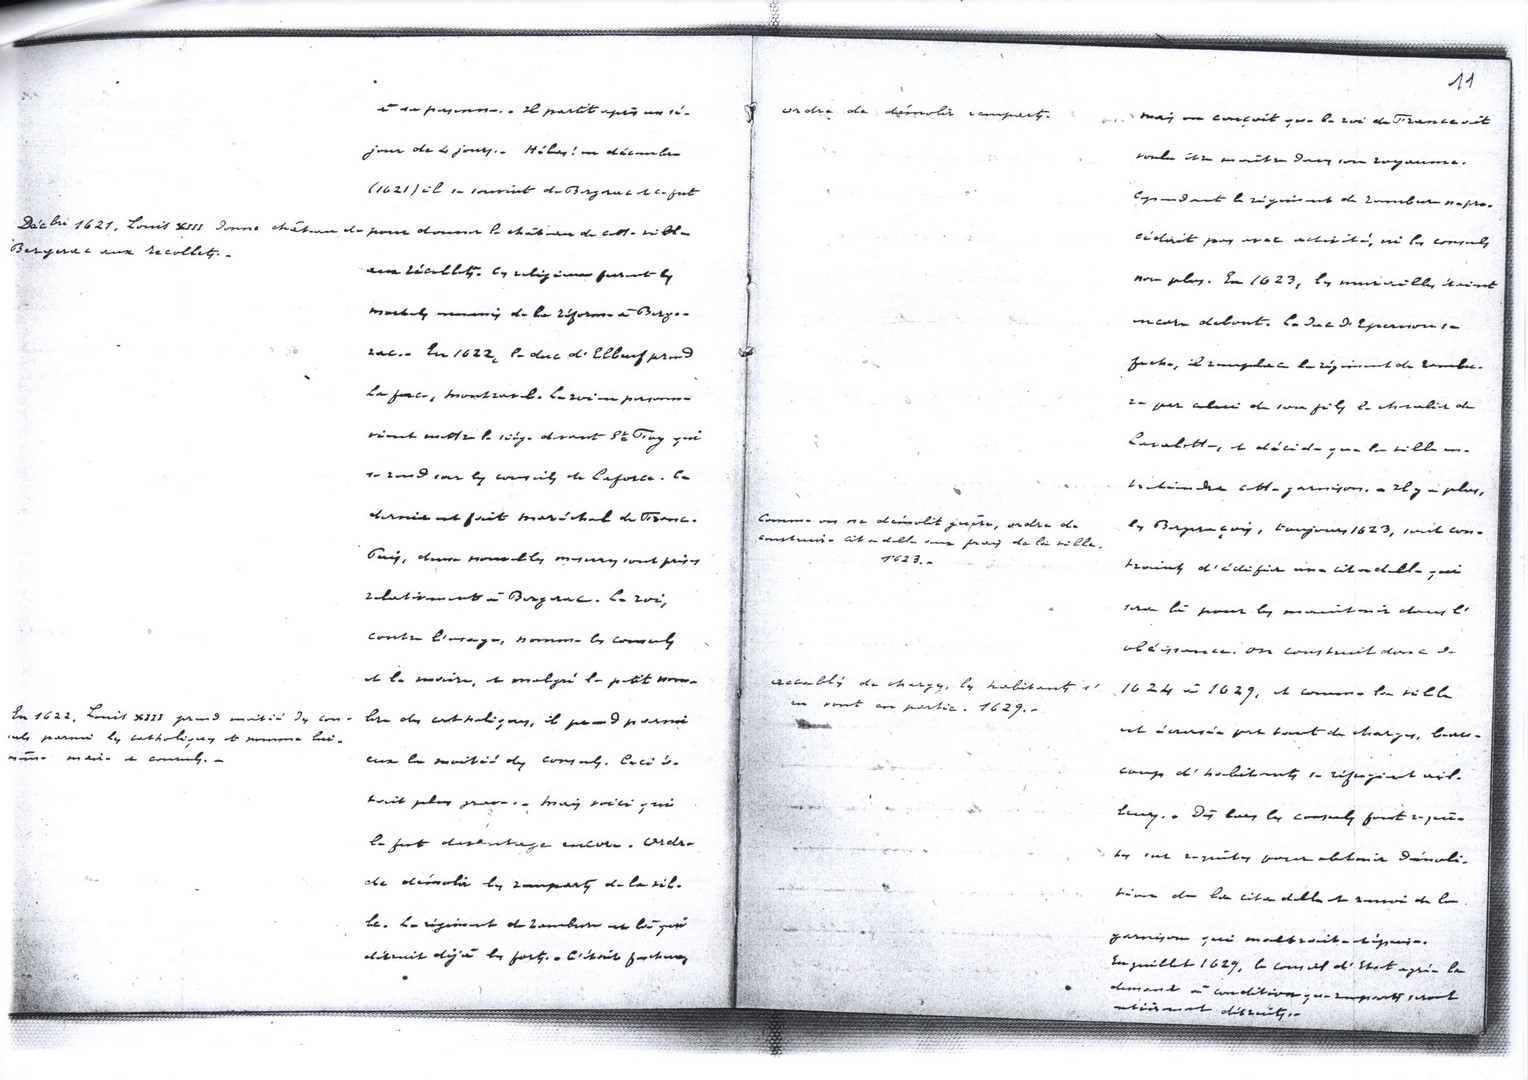 à sa personne. - Il partit après un sé-
jour de 4 jours. - Hélas! en décembre
(1621) il se souvint de Bergerac et ce fut
Décbre 1621, Louis XIII donne château de
Bergerac aux recollets. -
pour donner le château de cette ville
aux récollets. Ces religieux furent les
mortels ennemis de la réforme à Berge-
rac. - En 1622, le duc d'Elbeuf prend
La force, Montravel. Le roi en personne
vient mettre le siège devant Ste Foy qui
se rend sur les conseils de Laforce. Ce
dernier est fait maréchal de France.
Puis, deux nouvelles mesures sont prises
relativement à Bergerac. Le roi,
contre l'usage, nomme les consuls
et le maire, et malgré le petit nom-
En 1622, Louis XIII prend moitié des con-
suls parmi les catholiques et nomme lui-
même maire et consuls. -
bre des catholiques, il prend parmi
eux la moitié des consuls. Ceci é-
tait plus grave. - Mais voici qui
le fut davantage encore. Ordre
de démolir les remparts de la vil-
le. Le régiment de Rambure est là qui
détruit déjà les forts. - C'était fâcheux
11
ordre de démolir remparts.
mais on conçoit que le roi de France ait
voulu être maître dans son royaume.
Cependant le régiment de Rambure ne pro-
cédait pas avec activité, ni les consuls
non plus. En 1623, les murailles étaient
encore debout. Le duc d'Epernon se
fâche, il remplace le régiment de Rambu-
re par celui de son fils le chevalier de
Lavalette, et décide que la ville en-
tretiendra cette garnison. - Il y a plus,
Comme on ne démolit guère, ordre de
construire citadelle aux frais de la ville.
1623. -
les Bergeracois, toujours 1623, sont con-
traints d'édifier une citadelle qui
sera là pour les maintenir dans l'
obéissance. On construit donc de
accablés de charges, les habitants s'
en vont en partie. 1629. -
1624 à 1629, et comme la ville
est écrasée par tout de charges, beau-
coup d'habitants se réfugient ail-
leurs. - Dès lors les consuls font requê-
tes sur requêtes pour obtenir démoli-
tion de la citadelle et renvoi de la
garnison qui maltraite
En juillet 1629, le conseil d'Etat agrée la
demande à condition que remparts seront
entièrement détruits. -